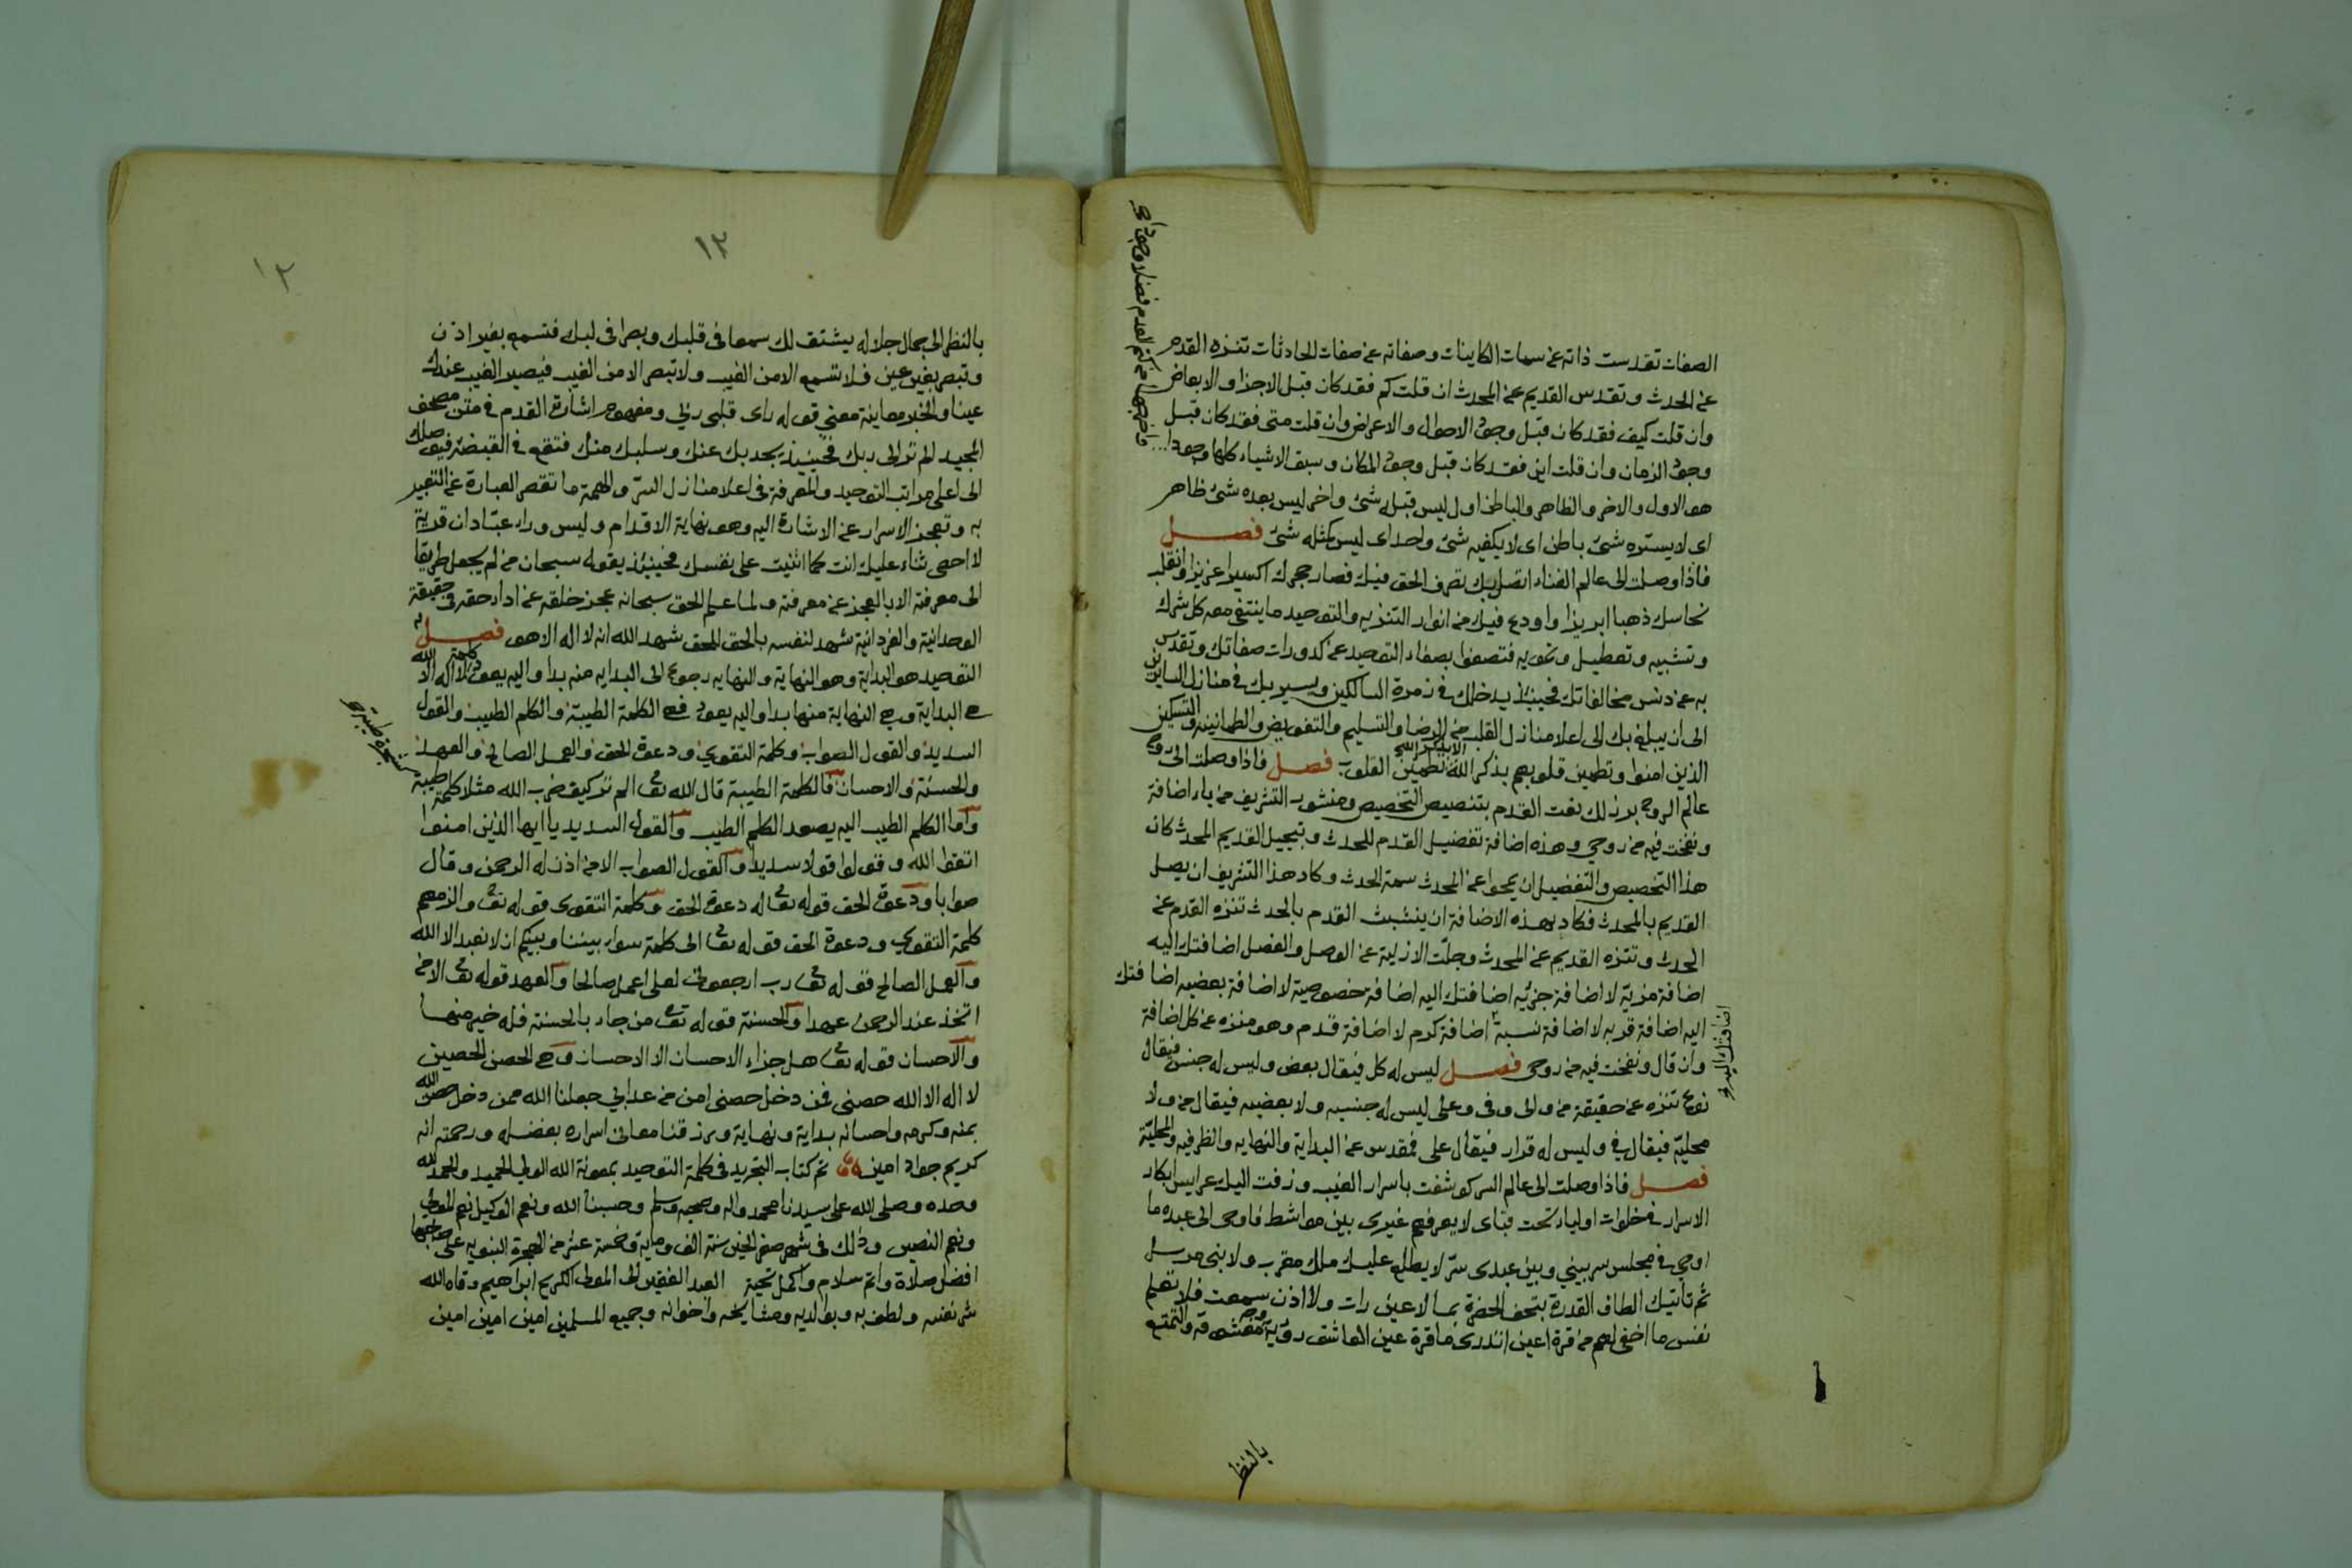 الصفات تقدست ذاته عن سمات الكاينات وصفاته عن صفات الحادثات تنزه القدم
عن الحدث وتقدس القديم عن المحدث ان قلت كم فقد كان قبل الاجزا والابعاض
وان قلت كيف فقد كان قبل وجود الاحوال والاعراض وان قلت متى فقد كان قبل
وجود الزمان وان قلت اين فقد كان قبل وجود المكان وسبق الاشياء كلها وجودا
واخرجها من كتم العدم فضلا وجودا صح
هو الاول والاخر والظاهر والباطن اول ليس قبله شئ واخر ليس بعده شئ ظاهر
اى لا يستره شئ باطن اى لا يكفيه شئ واحد اى ليس كمثله شئ فصل
فاذا وصلت الى عالم الفناء اتصل بك تصرف الحق فيك فصار حجرك اكسيرا عزيزا وانقلب
نحاسك ذهبا ابريزا واودع فيك من انوار التنزيه والتوحيد ما ينتفي معه كل شرك
وتشبيه وتعطيل وتمويه فتصفوا بصفاء التوحيد عن كدورات صفاتك وتقدس
به عن دنس مخالفاتك فحينئذ يدخلك في زمرة السالكين ويسير بك في منازل السايرين
الى ان يبلغ بك الى اعلا منازل القلب من الرضا والتسليم والتفويض والطمانينة والتسكين
الذين امنوا وتطمين قلوبهم بذكر الله الا بذكر الله تطمئن القلوب فصل فاذا وصلت الى روح
عالم الروح برز لك نعت القدم بتنصيص التخصيص ومنشور التشريف من ياء اضافة
ونفخت فيه من روحي وهذه اضافة تفضيل القدم للحدث وتبجيل القديم المحدث كان
هذا التخصيص والتفضيل ان يمحوا عن المحدث سمة الحدث وكاد هذا التشريف ان يصل
القديم بالمحدث فكاد بهذه الاضافة ان يتشبث القدم بالحدث تنزه القدم عن
الحدث وتنزه القديم عن المحدث وجلت الازلية عن الوصل والفصل اضافتك اليه
اضافة مزية لا اضافة جزئيه اضافتك اليه اضافة خصوصية لا اضافة بعضيه اضافتك
اليه اضافة قربه لا اضافة نسبة اضافة كرم لا اضافة قدم وهو منزه عن كل اضافة
اضافتك اليه صح
وان قال ونفخت فيه من روحى فصل ليس له كل فيقال بعض وليس له جنس فيقال
نوع تنزه عن حقيقة من والى وفى وعلى ليس له جنسيه ولا بعضيه فيقال من ولا
محلية فيقال في وليس له قرار فيقال على فمقدس عن البداية والنهايه والظرفيه والمحلية
فصل فاذا وصلت الى عالم السر كوشفت باسرار الغيب وزفت اليك عرايس ابكار
الاسرار في خلوات اولياء تحت قباى لا يعرفهم غيرى بين مواشط فاوحى الى عبده ما
اوحى في مجلس سر بيني وبين عبدى سر لا يطلع عليه ملك مقرب ولا نبى مرسل
ثم تاتيك الطاف القدرة بتحف الحضرة بما لا عين رات ولا اذن سمعت فلا تعلم
نفس ما اخفى لهم من قرة اعين اتدرى ما قرة عين العاشق رؤية معشوقه والتمتع
بالنظر
١٢
١٢
بالنظر الى جمال جلاله يشتق لك سمعا في قلبك وبصرا في لبك فتسمع بغير اذن
وتبصر بغير عين فلا تسمع الا من الغيب ولا تبصر الا من الغيب فيصير الغيب عندك
عينا والخبر معاينة معنى قوله راى قلبى ربى ومفهوم اشارة القدم في متن مصحف
المجيد الم تر الى ربك فحينئذ يجد بك عنك وسلبك منك فتقع في القبضة فيوصلك
الى اعلى مراتب التوحيد والمعرفة في اعلا منازل السر والهمة ما تقصر العبارة عن التعبير
به وتعجز الاسرار عن الاشارة اليه وهو نهاية الاقدام وليس وراء عبادان قرية
لا احصى ثناء عليك انت كما اثنيت على نفسك فحينئذ يقول سبحان من لم يجعل طريقا
الى معرفته الا بالعجز عن معرفته ولما علم الحق سبحانه عجز خلقه عن اداء حقه في حقيقة
الوحدانية والفردانية شهد لنفسه بالحق للحق شهد الله انه لا اله الا هو فصل
التوحيد هو البداية وهو النهاية والنهايه رجوع الى البدايه منه بدا واليه يعود كلمة لا اله الا الله
هي البداية وهي النهاية منها بدا واليه يعود فهي الكلمة الطيبة والكلم الطيب والقول
السديد والقول الصواب وكلمة التقوى ودعوة الحق والعمل الصالح والعهد
والحسنة والاحسان فالكلمة الطيبة قال الله تعالى الم تر كيف ضرب الله مثلا كلمة طيبة
كشجرة طيبة صح
واما الكلم الطيب اليه يصعد الكلم الطيب والقول السديد يا ايها الذين امنوا
اتقوا الله وقولوا قولا سديدا والقول الصواب الا من اذن له الرحمن وقال
صوابا ودعوة الحق قوله تعالى له دعوة الحق وكلمة التقوى قوله تعالى والزمهم
كلمة التقوى ودعوة الحق قوله تعالى الى كلمة سواء بيننا وبينكم ان لا نعبد الا الله
والعمل الصالح قوله تعالى رب ارجعون لعلى اعمل صالحا والعهد قوله تعالى الا من
اتخذ عند الرحمن عهدا والحسنة قوله تعالى من جاء بالحسنة فله خير منها
والاحسان قوله تعالى هل جزاء الاحسان الا الاحسان وهي الحصن الحصين
لا اله الا الله حصنى فمن دخل حصنى امن من عذابي جعلنا الله ممن دخل حصن الله
بمنه وكرمه واحسانه بداية ونهاية ورزقنا معانى اسراره بفضله ورحمته انه
كريم جواد امين تم كتاب التجريد في كلمة التوحيد بمعونة الله الولى الحميد والحمد لله
وحده وصلى الله على سيدنا محمد واله وصحبه وسلم وحسبنا الله ونعم الوكيل نعم المولى
ونعم النصير وذلك في شهر صفر الخير سنة الف وماية وخمسة عشر من الهجرة النبويه على صاحبها
افضل صلاة واتم سلام واكمل تحية العبد الفقير الى المولى الكريم ابراهيم وقاه الله
شر نفسه ولطف به وبوالديه ومشايخه واخوانه وجميع المسلمين امين امين امين